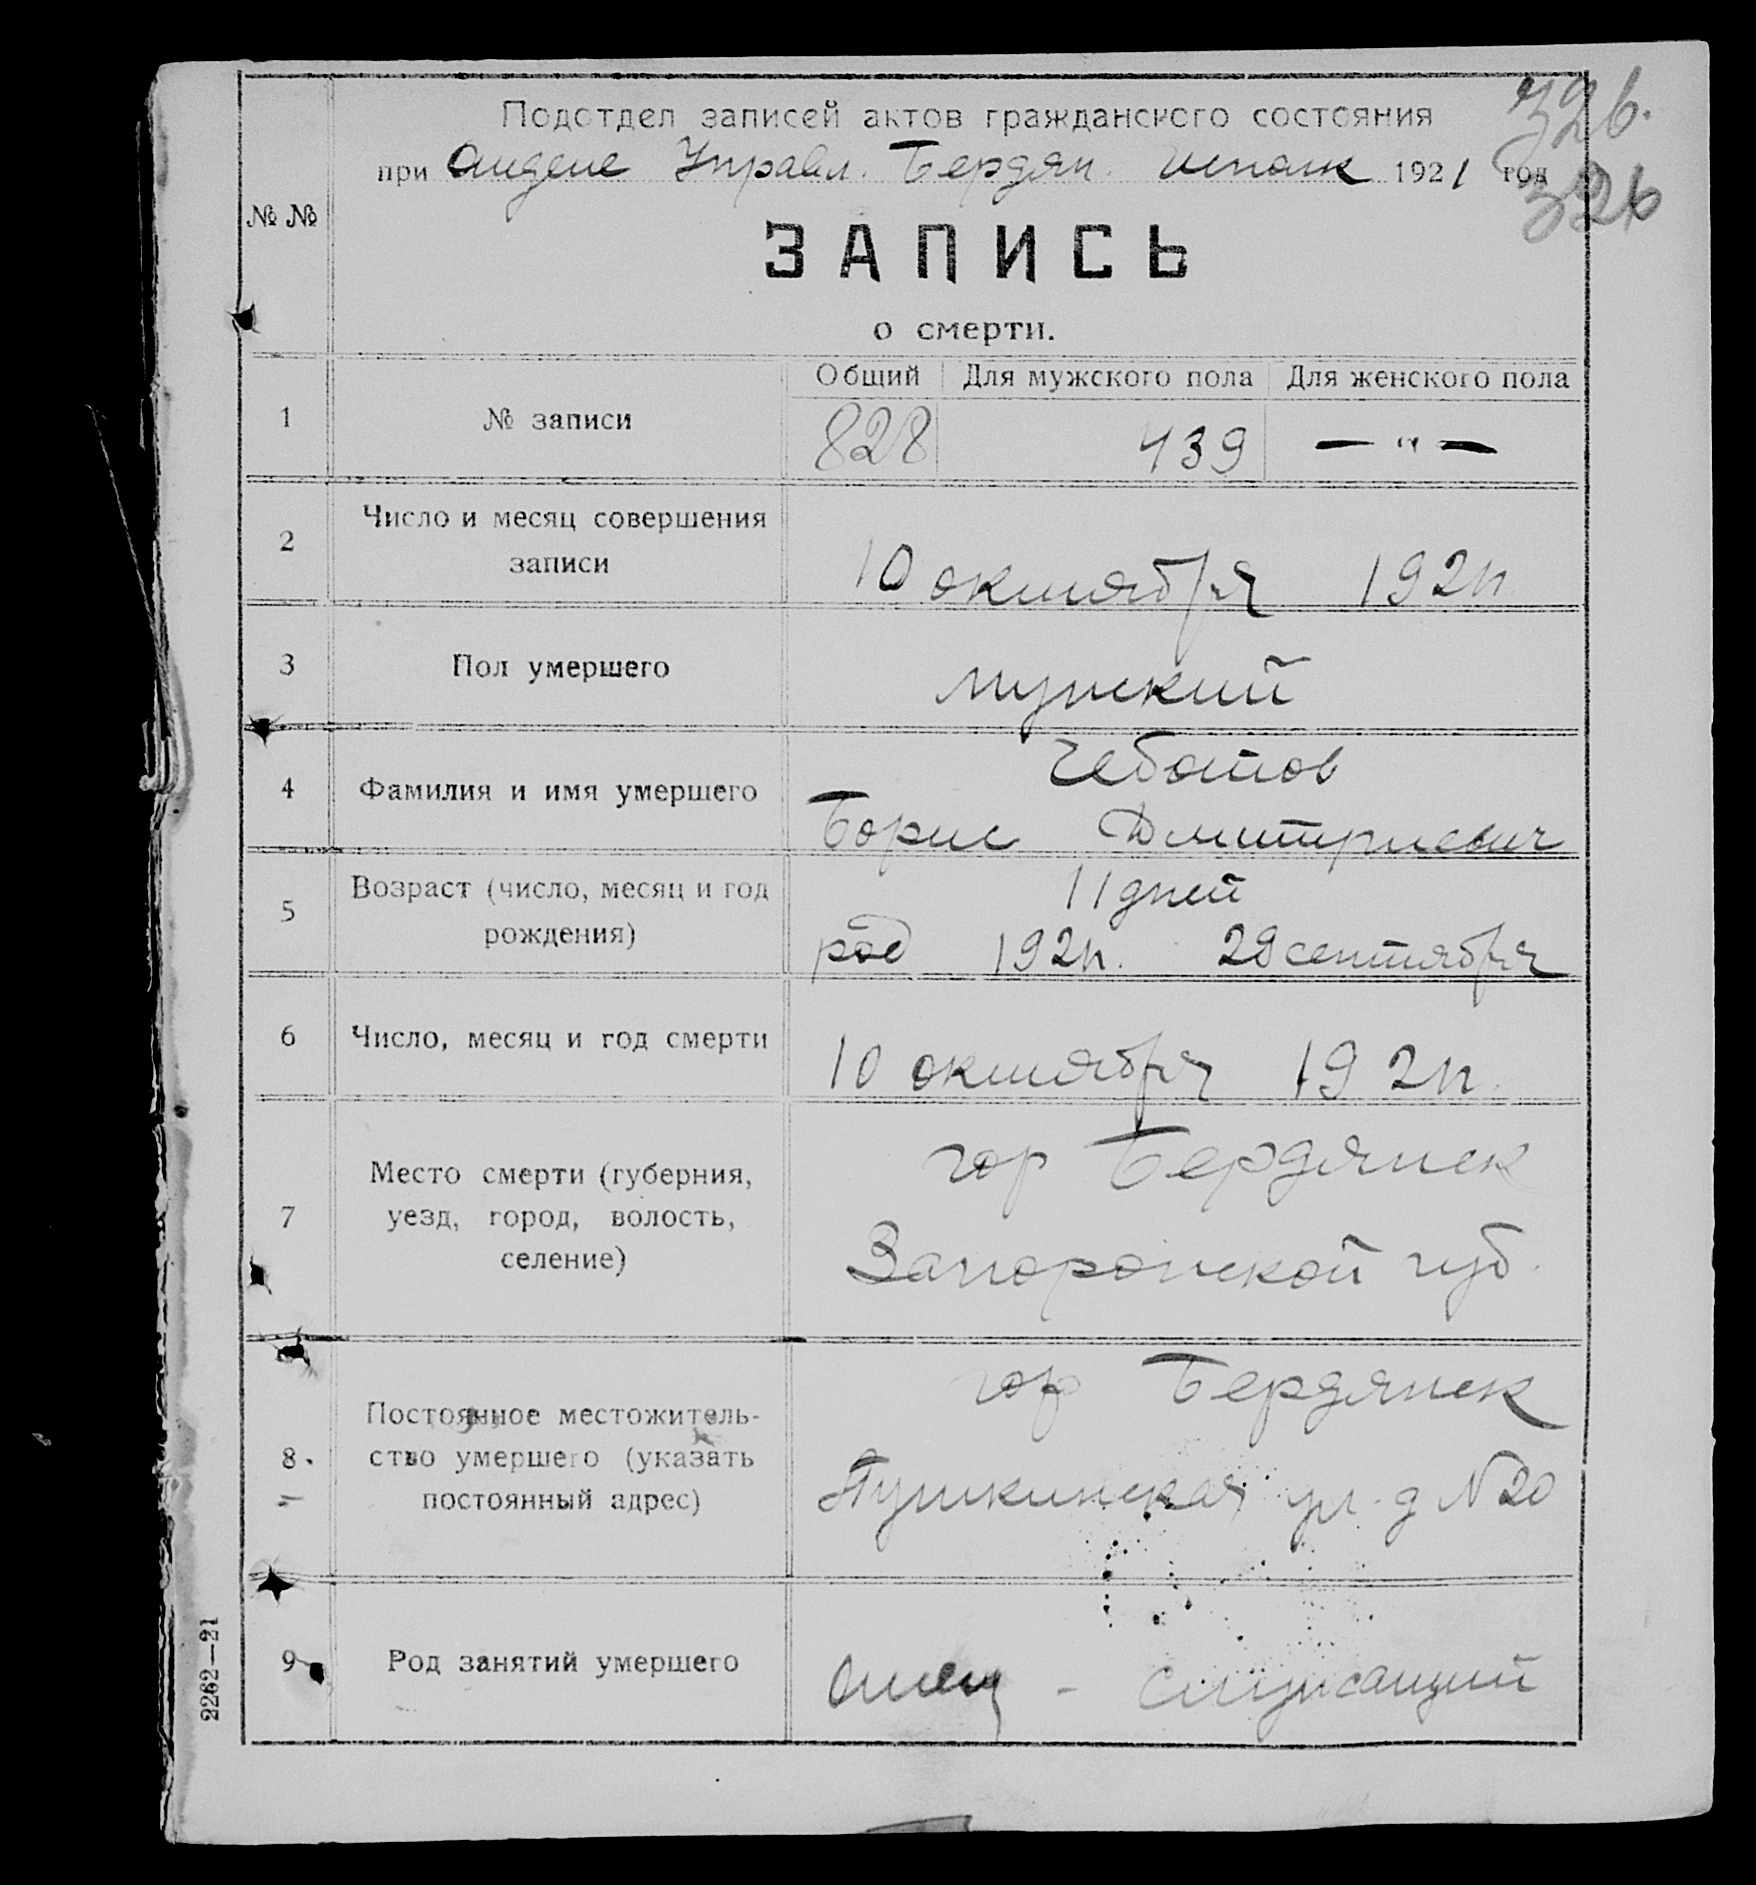 326.
Подотдел записей актов гражданского состояния
при Отделе Управл. Бердян. Исполк 1921 год
326
№ №
ЗАПИСЬ
о смерти.
Общий Для мужского пола Для женского пола
1 № записи 828 439 — " —
2 Число и месяц совершения
записи 10 октября 1921г.
3 Пол умершего мужский
4 Фамилия и имя умершего Чеботов
Борис Дмитриевич
5 Возраст (число, месяц и год
рождения) 11 дней
род 1921г. 29 сентября
6 Число, месяц и год смерти 10 октября 1921г.
7 Место смерти (губерния,
уезд, город, волость,
селение)
гор Бердянск
Запорожской губ.
8. Постоянное местожитель-
ство умершего (указать
постоянный адрес)
гор Бердянск
Пушкинская ул. д N 20
9 Род занятий умершего отец - служащий
2262—21